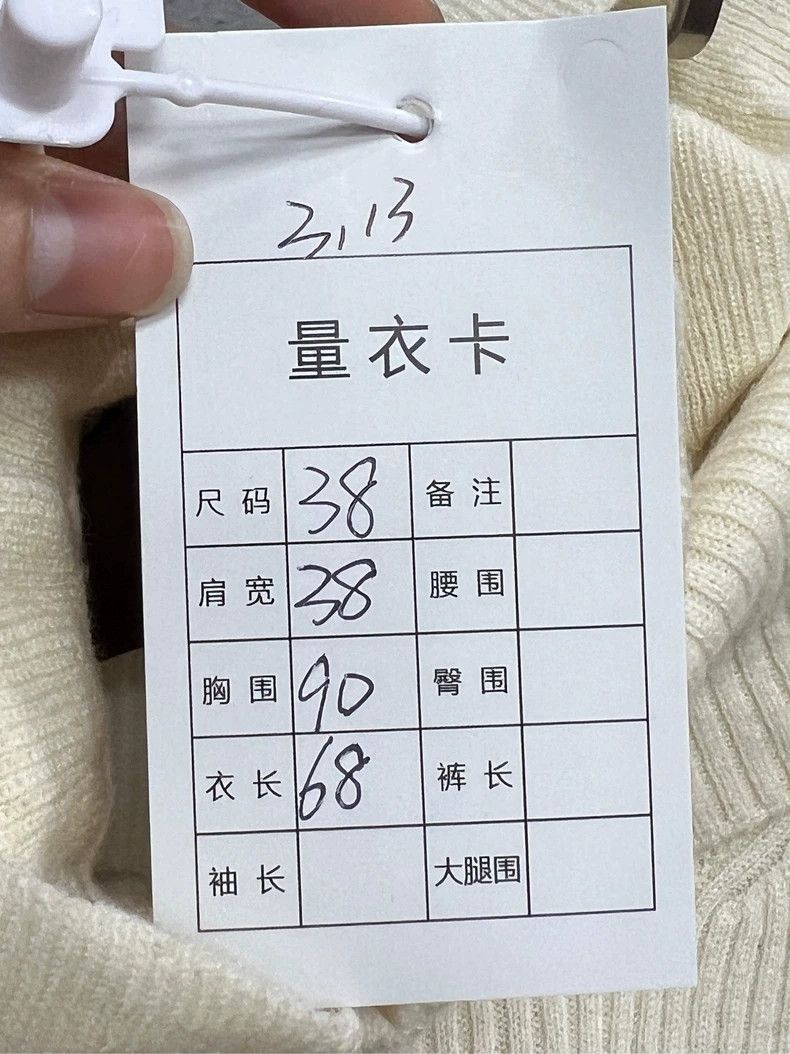 3,13
量衣卡
尺码 38 备注
肩宽 38 腰围
胸围 90 臀围
衣长 68 裤长
袖长 大腿围